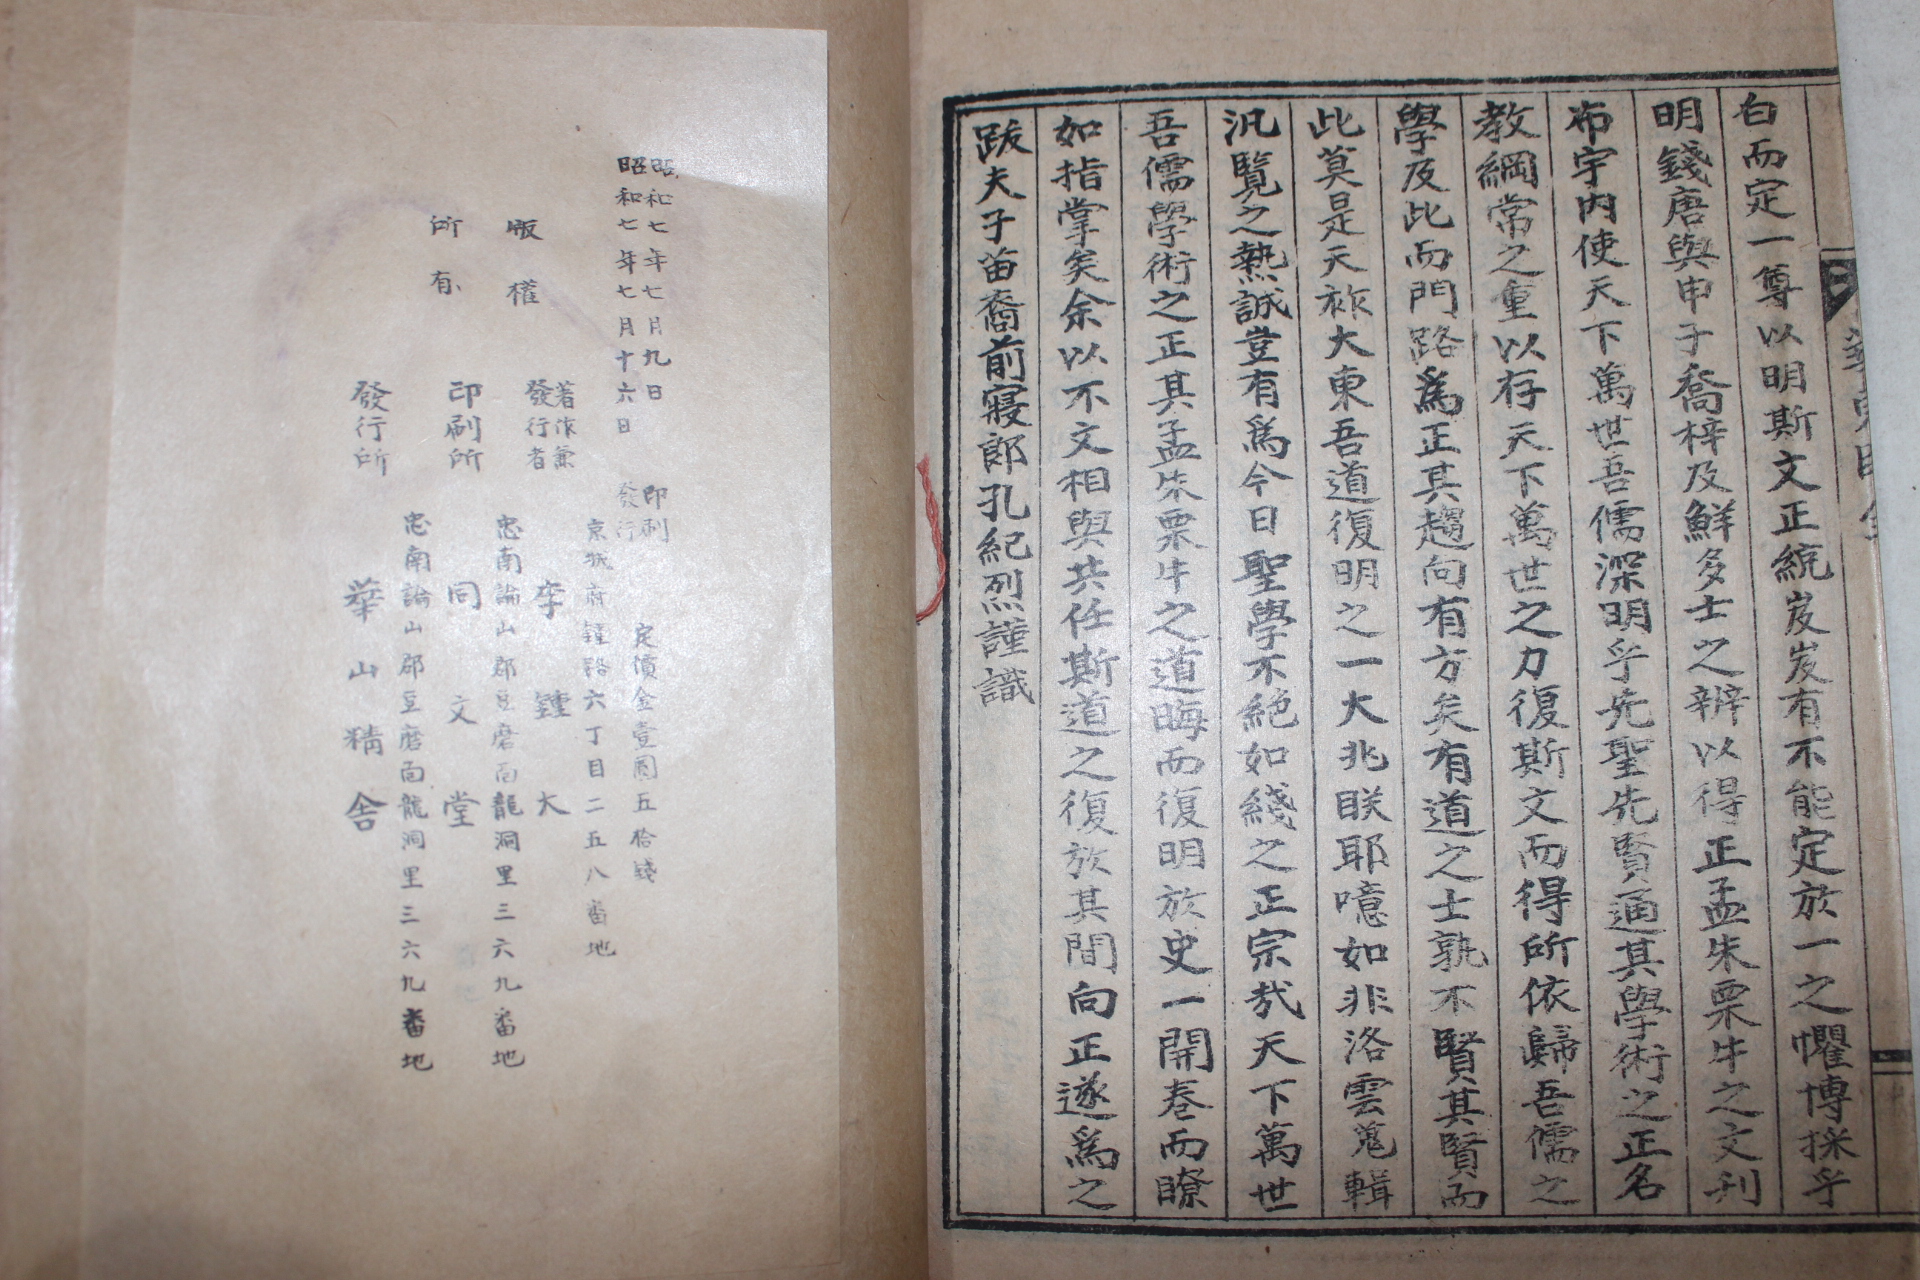 白而定一尊以明斯文正統岌岌有不能定於一之懼博採乎
明錢唐與申子喬梓及鮮多士之辨以得正孟朱栗牛之文刊
布宇内使天下萬世吾儒深明乎先聖先賢通其學術之正名
教綱常之重以存天下萬世之力復斯文而得所依歸吾儒之
學及此而門路爲正其趨向有方矣有道之士孰不賢其賢而
此莫是天祚大東吾道復明之一大兆眹耶噫如非洛雲蒐輯
汎覽之熱誠豈有爲今日聖學不絶如綫之正宗哉天下萬世
吾儒學術之正其孟朱栗牛之道晦而復明於史一開卷而瞭
如指掌矣余以不文相與共任斯道之復於其間向正遂爲之
跋夫子苗裔前寢郎孔紀烈謹識
昭和七年七月九日 印刷
昭和七年七月十六日 發行
定價金壹圓五拾錢
版權
所有
京城府鍾路六丁目二五八番地
著作兼
發行者 李鍾大
忠南論山郡豆磨面龍洞里三六九番地
印刷所 同文堂
忠南論山郡豆磨面龍洞里三六九番地
發行所 華山精舍